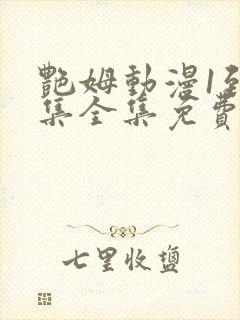 艷姆動漫1至
集全集免費
七里收鹽